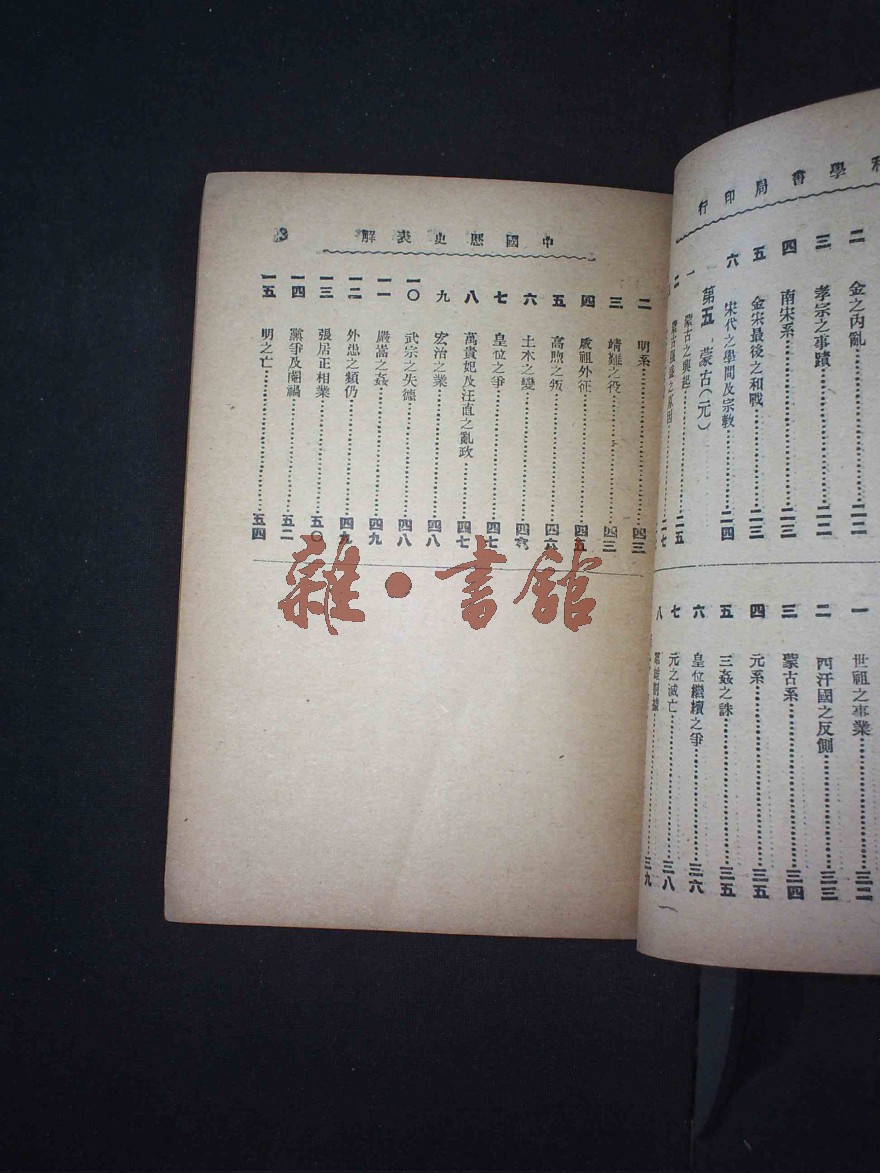 學會局印行
二 金之內亂 二二
三 孝宗之事蹟 二二
四 南宋系 二三
五 金宋最後之和戰 二三
六 宋代之學問及宗教 二四
第五 蒙古(元)
一 蒙古之興起 二五
二 二七
一 世祖之事業 三二
二 四汗國之反側 三三
三 蒙古系 三四
四 元系 三五
五 三姦之誅 三五
六 皇位繼續之爭 三六
七 元之滅亡 三八
八 三九
中國歷史表解
二 明系 四三
三 靖難之役 四三
四 成祖外征 四五
五 高煦之叛 四六
六 土木之變 四六
七 皇位之爭 四七
八 萬貴妃及汪直之亂政 四七
九 宏治之業 四八
一〇 武宗之失德 四八
一一 嚴嵩之姦 四九
一二 外患之頻仍 四九
一三 張居正相業 五〇
一四 黨爭及閹禍 五二
一五 明之亡 五四
雜·書館